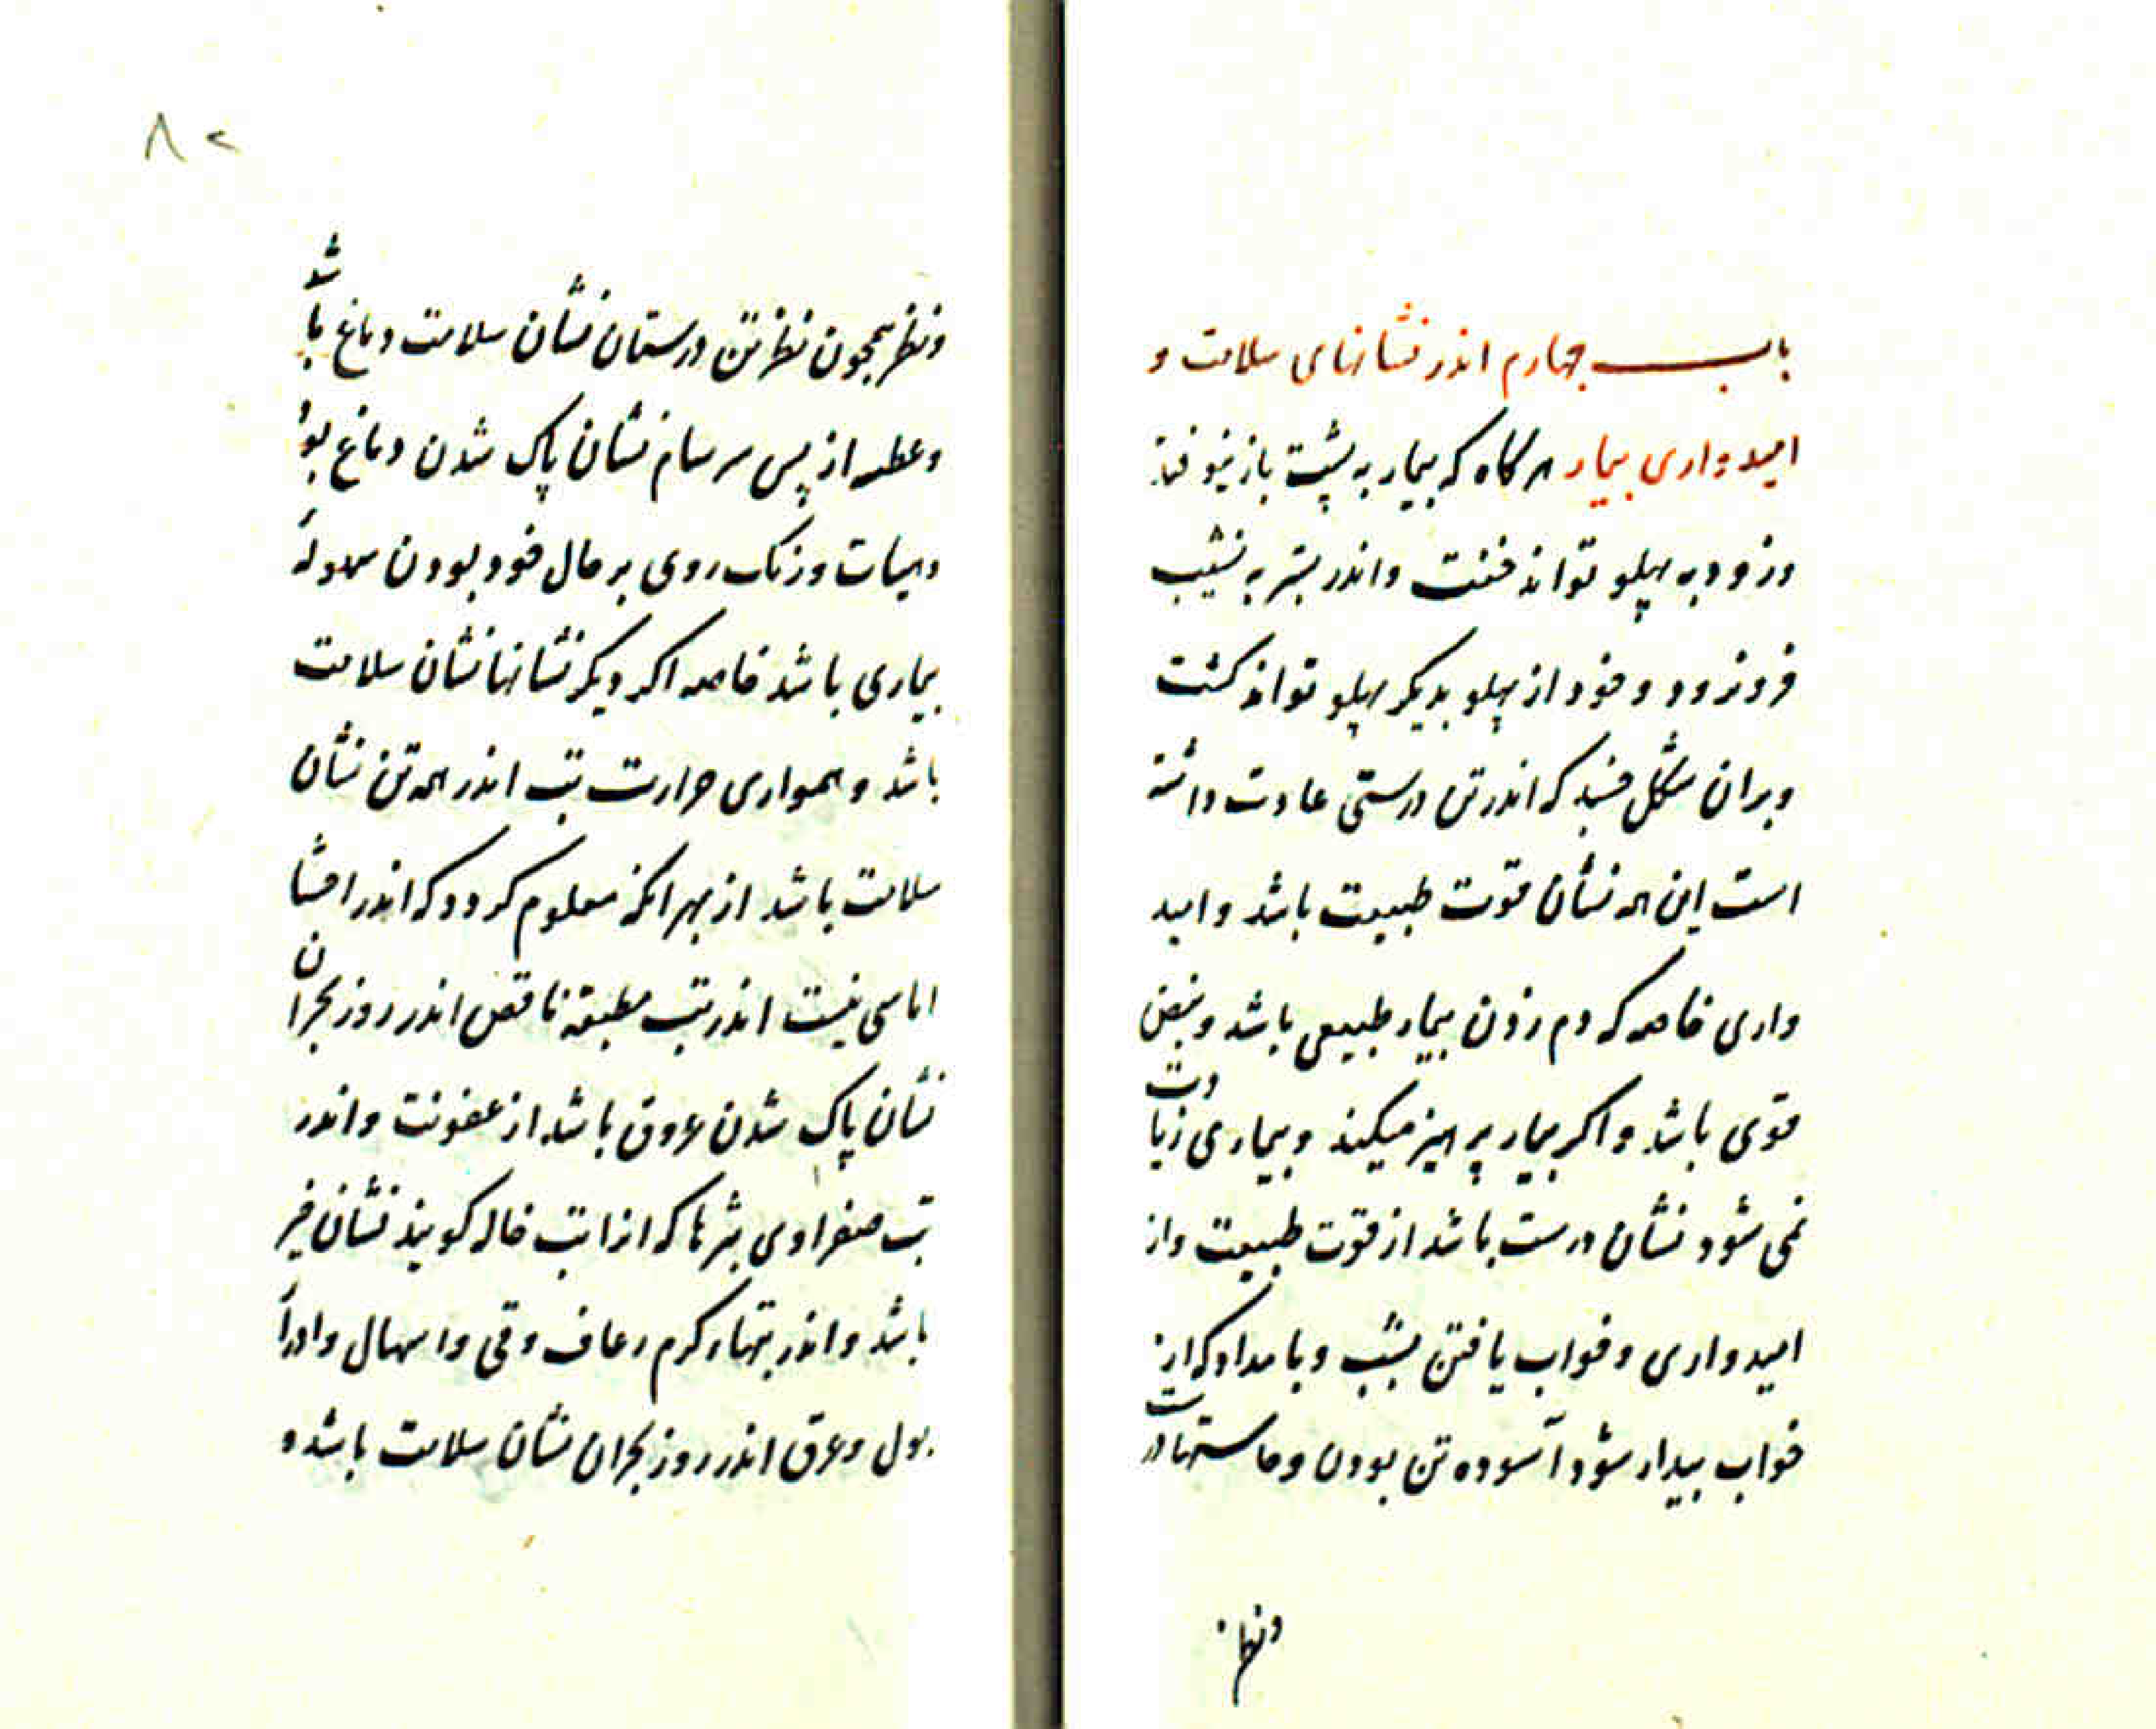 باب چهارم اندر نشانهای سلامت و
امیدواری بیمار هرکاه که بیمار به پشت باز نیوفتذ
و زود به پهلو تواند خفت و اندر بستر به نشیب
فرو نرود و خود از پهلو بدیکر پهلو تواند کشت
و بران شکل خسبد که اندر تن درستی عادت داشته
است این همه نشان قوت طبیعت باشد و امید
واری خاصه که دم زدن بیمار طبیعی باشد و نبض
قوی باشد و اکر بیمار پرهیز میکند و بیماری زیادت
نمی شود نشان درست باشد از قوت طبیعت و از
امیدواری و خواب یافتن بشب و بامداد که از
خواب بیدار شود آسوده تن بودن و حاستها درست
و نظر
۸۲
و نظر همچون نظر تن درستان نشان سلامت دماغ باشد
و عطسه از پس سرسام نشان پاک شدن دماغ بود
و هیات و رنک روی بر حال خود بودن
بیماری باشد خاصه اکر دیکر نشانها نشان سلامت
باشد و همواری حرارت تب اندر همه تن نشان
سلامت باشد از بهر انکه معلوم کردد که اندر احشا
اماسی نیست اندر تب مطبقه ناقض اندر روز بحران
نشان پاک شدن عروق باشد از عفونت و اندر
تب صفراوی بثرها که از ا تب خاله کویند نشان خیر
باشد و اندر تبهاء کرم رعاف و قی و اسهال و ادرار
بول و عرق اندر روز بحران نشان سلامت باشد و